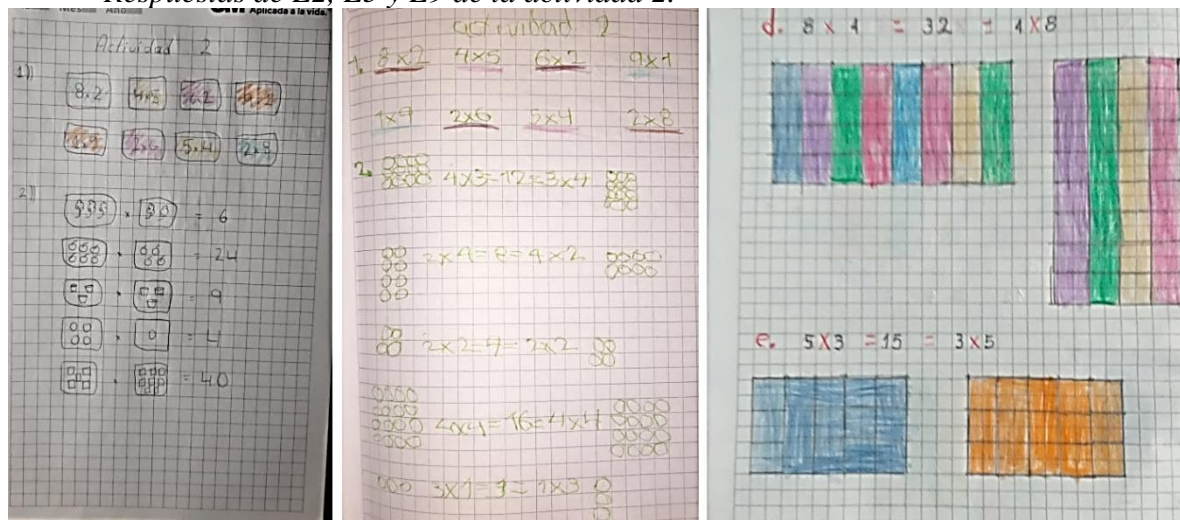 Respuestas de E2, E3 y E9 de la actividad 2.
Mes Año Aplicada a la vida.
Actividad 2
1)) 8.2 4x5 6.2
5x4 2x8
2)) . = 6
. = 24
. = 9
. = 4
. = 40
actividad 2
1. 8x2 4x5 6x2 9x1
1x9 2x6 5x4 2x8
2. 4x3=12=3x4
2x4=8=4x2
2x2=4=2x2
4x4=16=4x4
3x1=3=1x3
d. 8 x 4 = 32 = 4x8
e. 5x3 =15 = 3x5